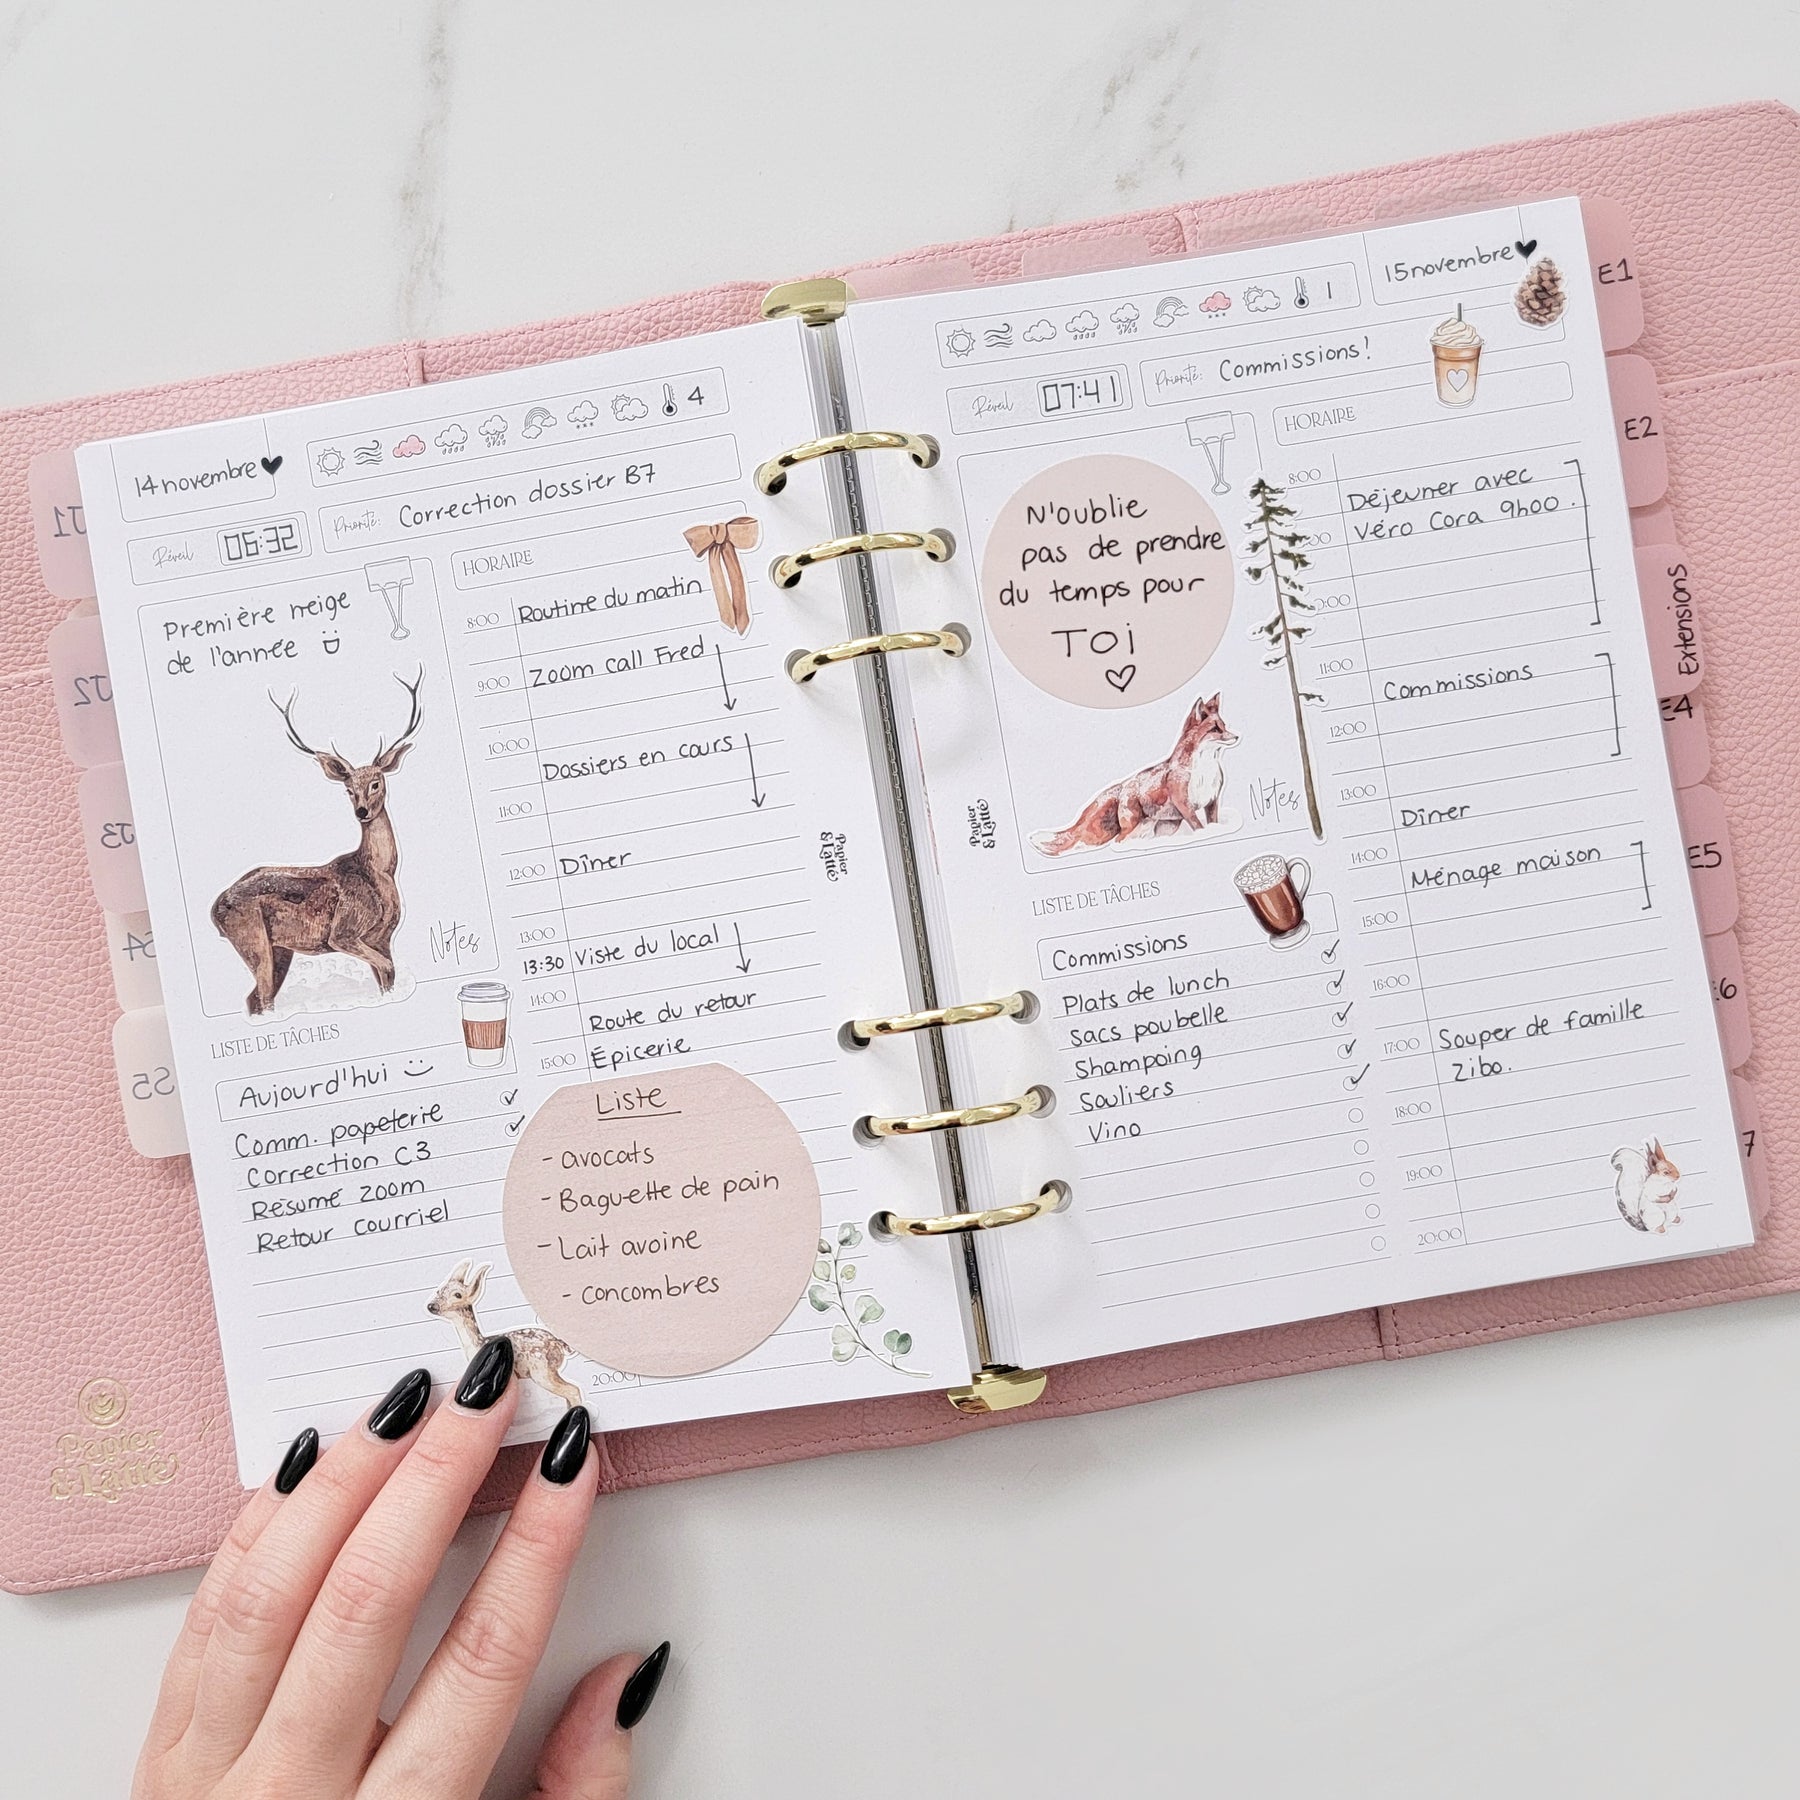 14 novembre
4
Réveil
06:32
Priorité: Correction dossier B7
Première neige
de l'année
Notes
HORAIRE
8:00 Routine du matin
9:00 Zoom call Fred
10:00
Dossiers en cours
11:00
12:00 Dîner
13:00
13:30 Viste du local
14:00
Route du retour
15:00 Épicerie
Liste
- avocats
- Baguette de pain
- Lait avoine
- concombres
20:00
LISTE DE TÂCHES
Aujourd'hui
Comm. papeterie
Correction C3
Résumé zoom
Retour courriel
Papier
& Latté
Papier
& Latté
J1
J2
J3
S5
15 novembre
1
Réveil
07:41
Priorité: Commissions!
N'oublie
pas de prendre
du temps pour
TOi
Notes
HORAIRE
8:00
Déjeuner avec
Véro Cora 9h00.
11:00
Commissions
12:00
13:00
Dîner
14:00
Ménage maison
15:00
16:00
17:00 Souper de famille
Zibo.
18:00
19:00
20:00
LISTE DE TÂCHES
Commissions
Plats de lunch
Sacs poubelle
Shampoing
Souliers
Vino
Papier
& Latté
E1
E2
Extensions
E4
E5
E6
7